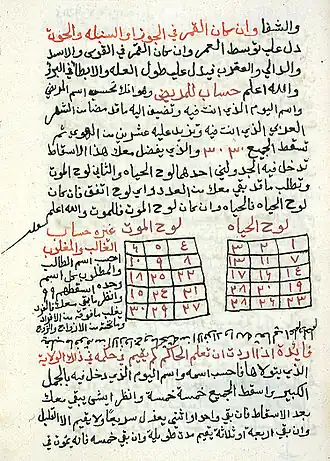 والشفا وان كان القمر في الجوزا والسنبله والحوت
دل على توسط العمر وان كان القمر في القوس والاسد
والدالي والعقرب فيدل على طول العله والابطا في البرو
والله اعلم حساب للمريض وهو انك تحسب اسم المريض
واسم اليوم الذي انت فيه وتضيف اليه ما قد مضا من الشهر
العربي الذي انت فيه وتزيد عليه عشرين من الهوي ثم
تسقط الجميع ٣٠ ٣٠ والذي يفضل معك هذا الاسقاط
تدخل فيه الجدولين احدهما لوح الحياه والثاني لوح الموت
وتطلب ما قد بقي معك من العدد وفي اي لوح اتفق فان كان
لوح الحياه فالحياه وان كان لوح الموت فالموت والله اعلم
لوح الحياه
لوح الموت
غيره حساب
الغالب والمغلوب
١ ٢ ٣
٧ ١١ ١٣
١٤ ١٦ ١٧
١٩ ٢٠
٢٣ ٢٦ ٢٨
٤ ٥ ٦
٨ ٩ ١٠
٢٢ ٢٥ ١٨
٢١ ٢٤ ١٥
٢٧ ٢٩ ٣٠
احسب اسم الطالب
والمطلوب كل اسم
وحده اسقطهم ٩ ٩
وانظر ما بقي معك
فايده اذا اردت ان تعلم الحاكم كم يقيم في حكمه في تلك الولايه
الذي يتولاها فاحسب اسمه واسم اليوم الذي دخل فيه بالجمل
الكبير واسقط الجميع خمسه خمسه وانظر ايش يبقي معك
بعد الاسقاط فان بقي واحد او اثنين يعزل سريعا ولا يقيم الا القليل
وان بقي اربعه او ثلاثه يقيم مده طويله وان بقي خمسه فانه يموت في